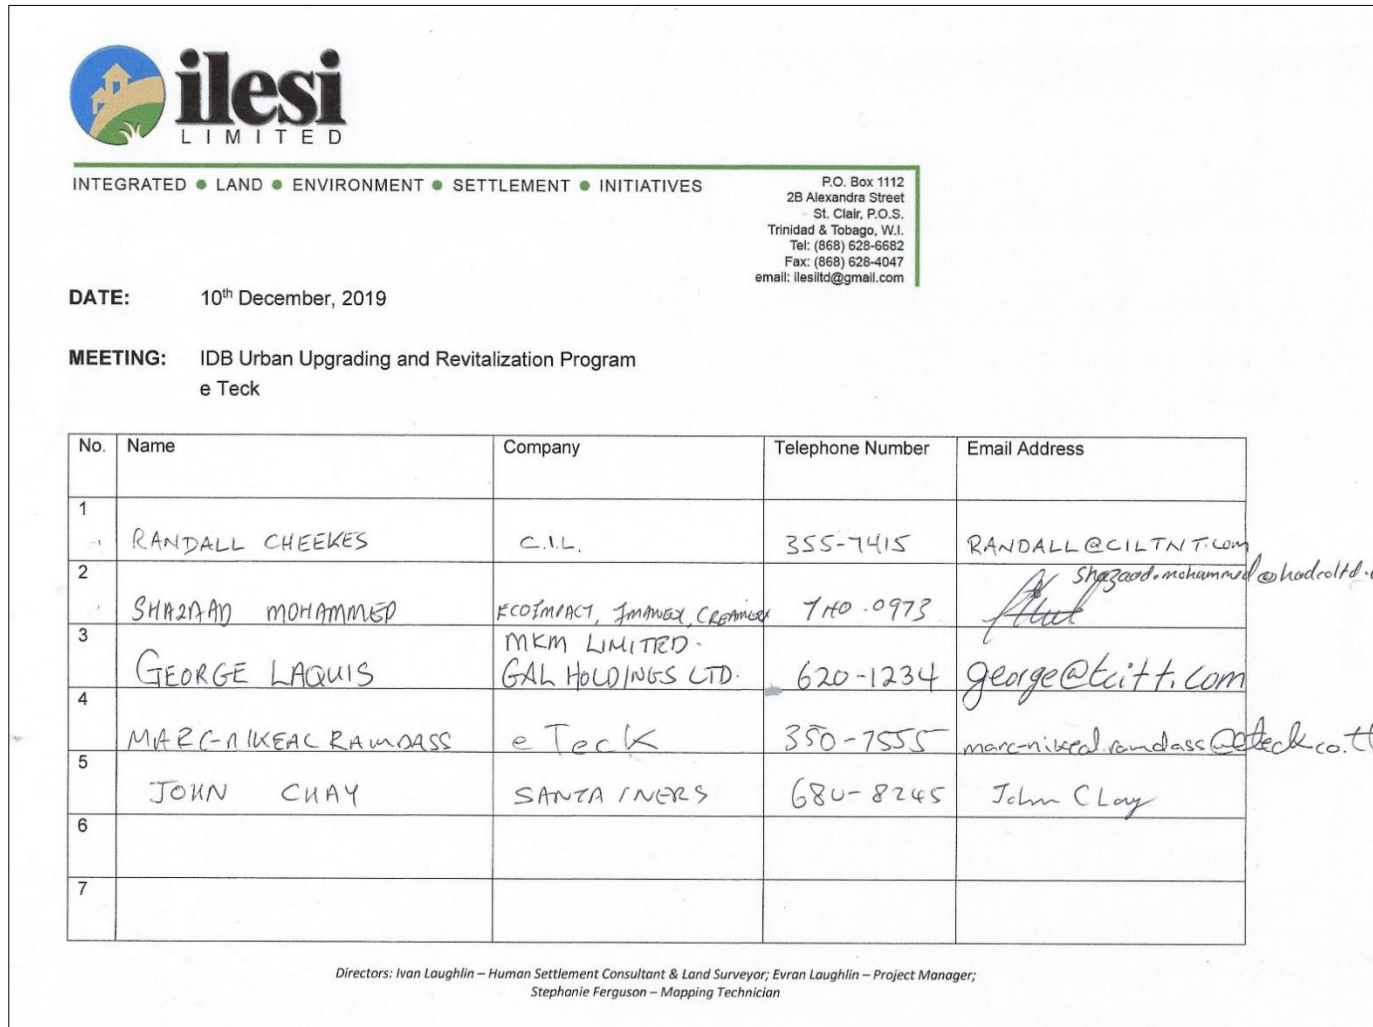 ilesi
LIMITED
INTEGRATED ● LAND ● ENVIRONMENT ● SETTLEMENT ● INITIATIVES
P.O. Box 1112
2B Alexandra Street
St. Clair, P.O.S.
Trinidad & Tobago, W.I.
Tel: (868) 628-6682
Fax: (868) 628-4047
email: ilesiltd@gmail.com
DATE: 10th December, 2019
MEETING: IDB Urban Upgrading and Revitalization Program
e Teck
No. Name Company Telephone Number Email Address
1 RANDALL CHEEKES C.I.L. 355-7415 RANDALL@CILTNT.com
2 SHAZAAD MOHAMMED ECOIMPACT, 0973
3 GEORGE LAQUIS MKM LIMITED.
GAL HOLDINGS LTD. 620-1234 george@tcitt.com
4 MARC-NIKEAL RAMDASS e Teck 350-7555
5 JOHN CHAY 680-8245 John
6
7
Directors: Ivan Laughlin – Human Settlement Consultant & Land Surveyor; Evran Laughlin – Project Manager;
Stephanie Ferguson – Mapping Technician